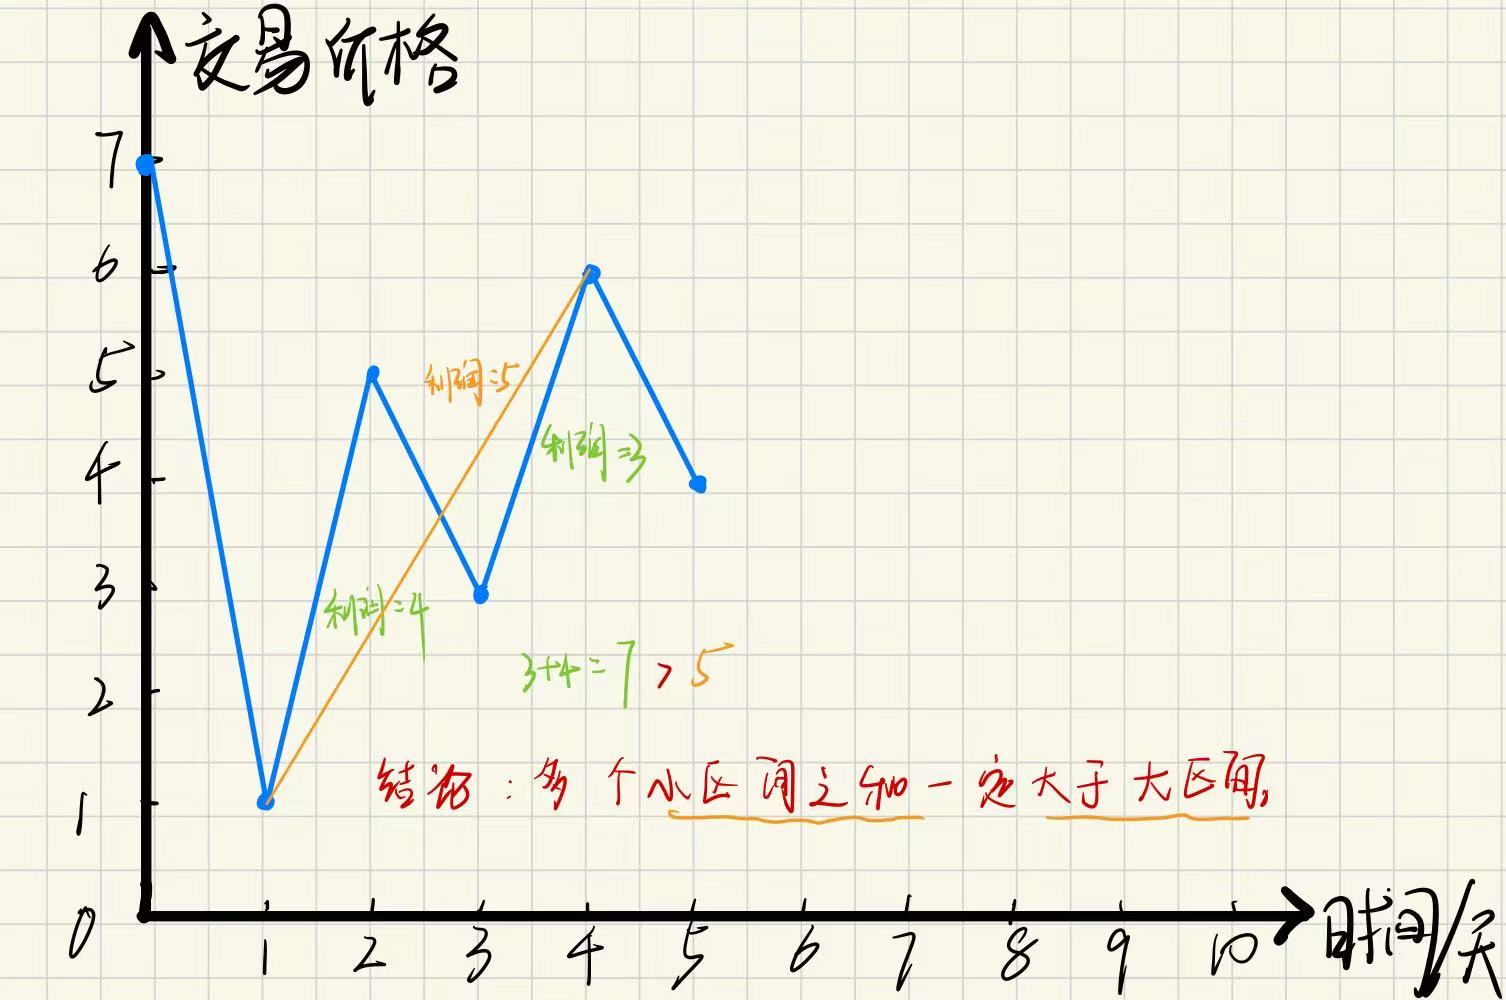 交易价格
7
6
5
4
3
2
1
0
利润=5
利润=3
利润=4
3+4=7>5
结论:多个小区间之和一定大于大区间,
1 2 3 4 5 6 7 8 9 10
时间/天